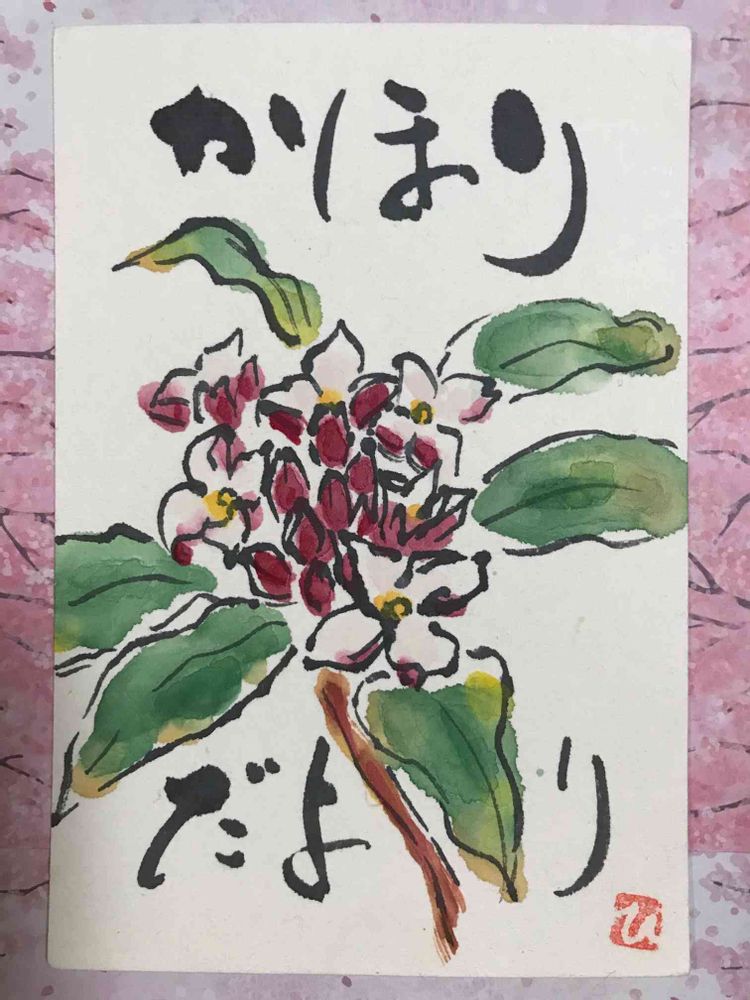 かほり
だより
ひ